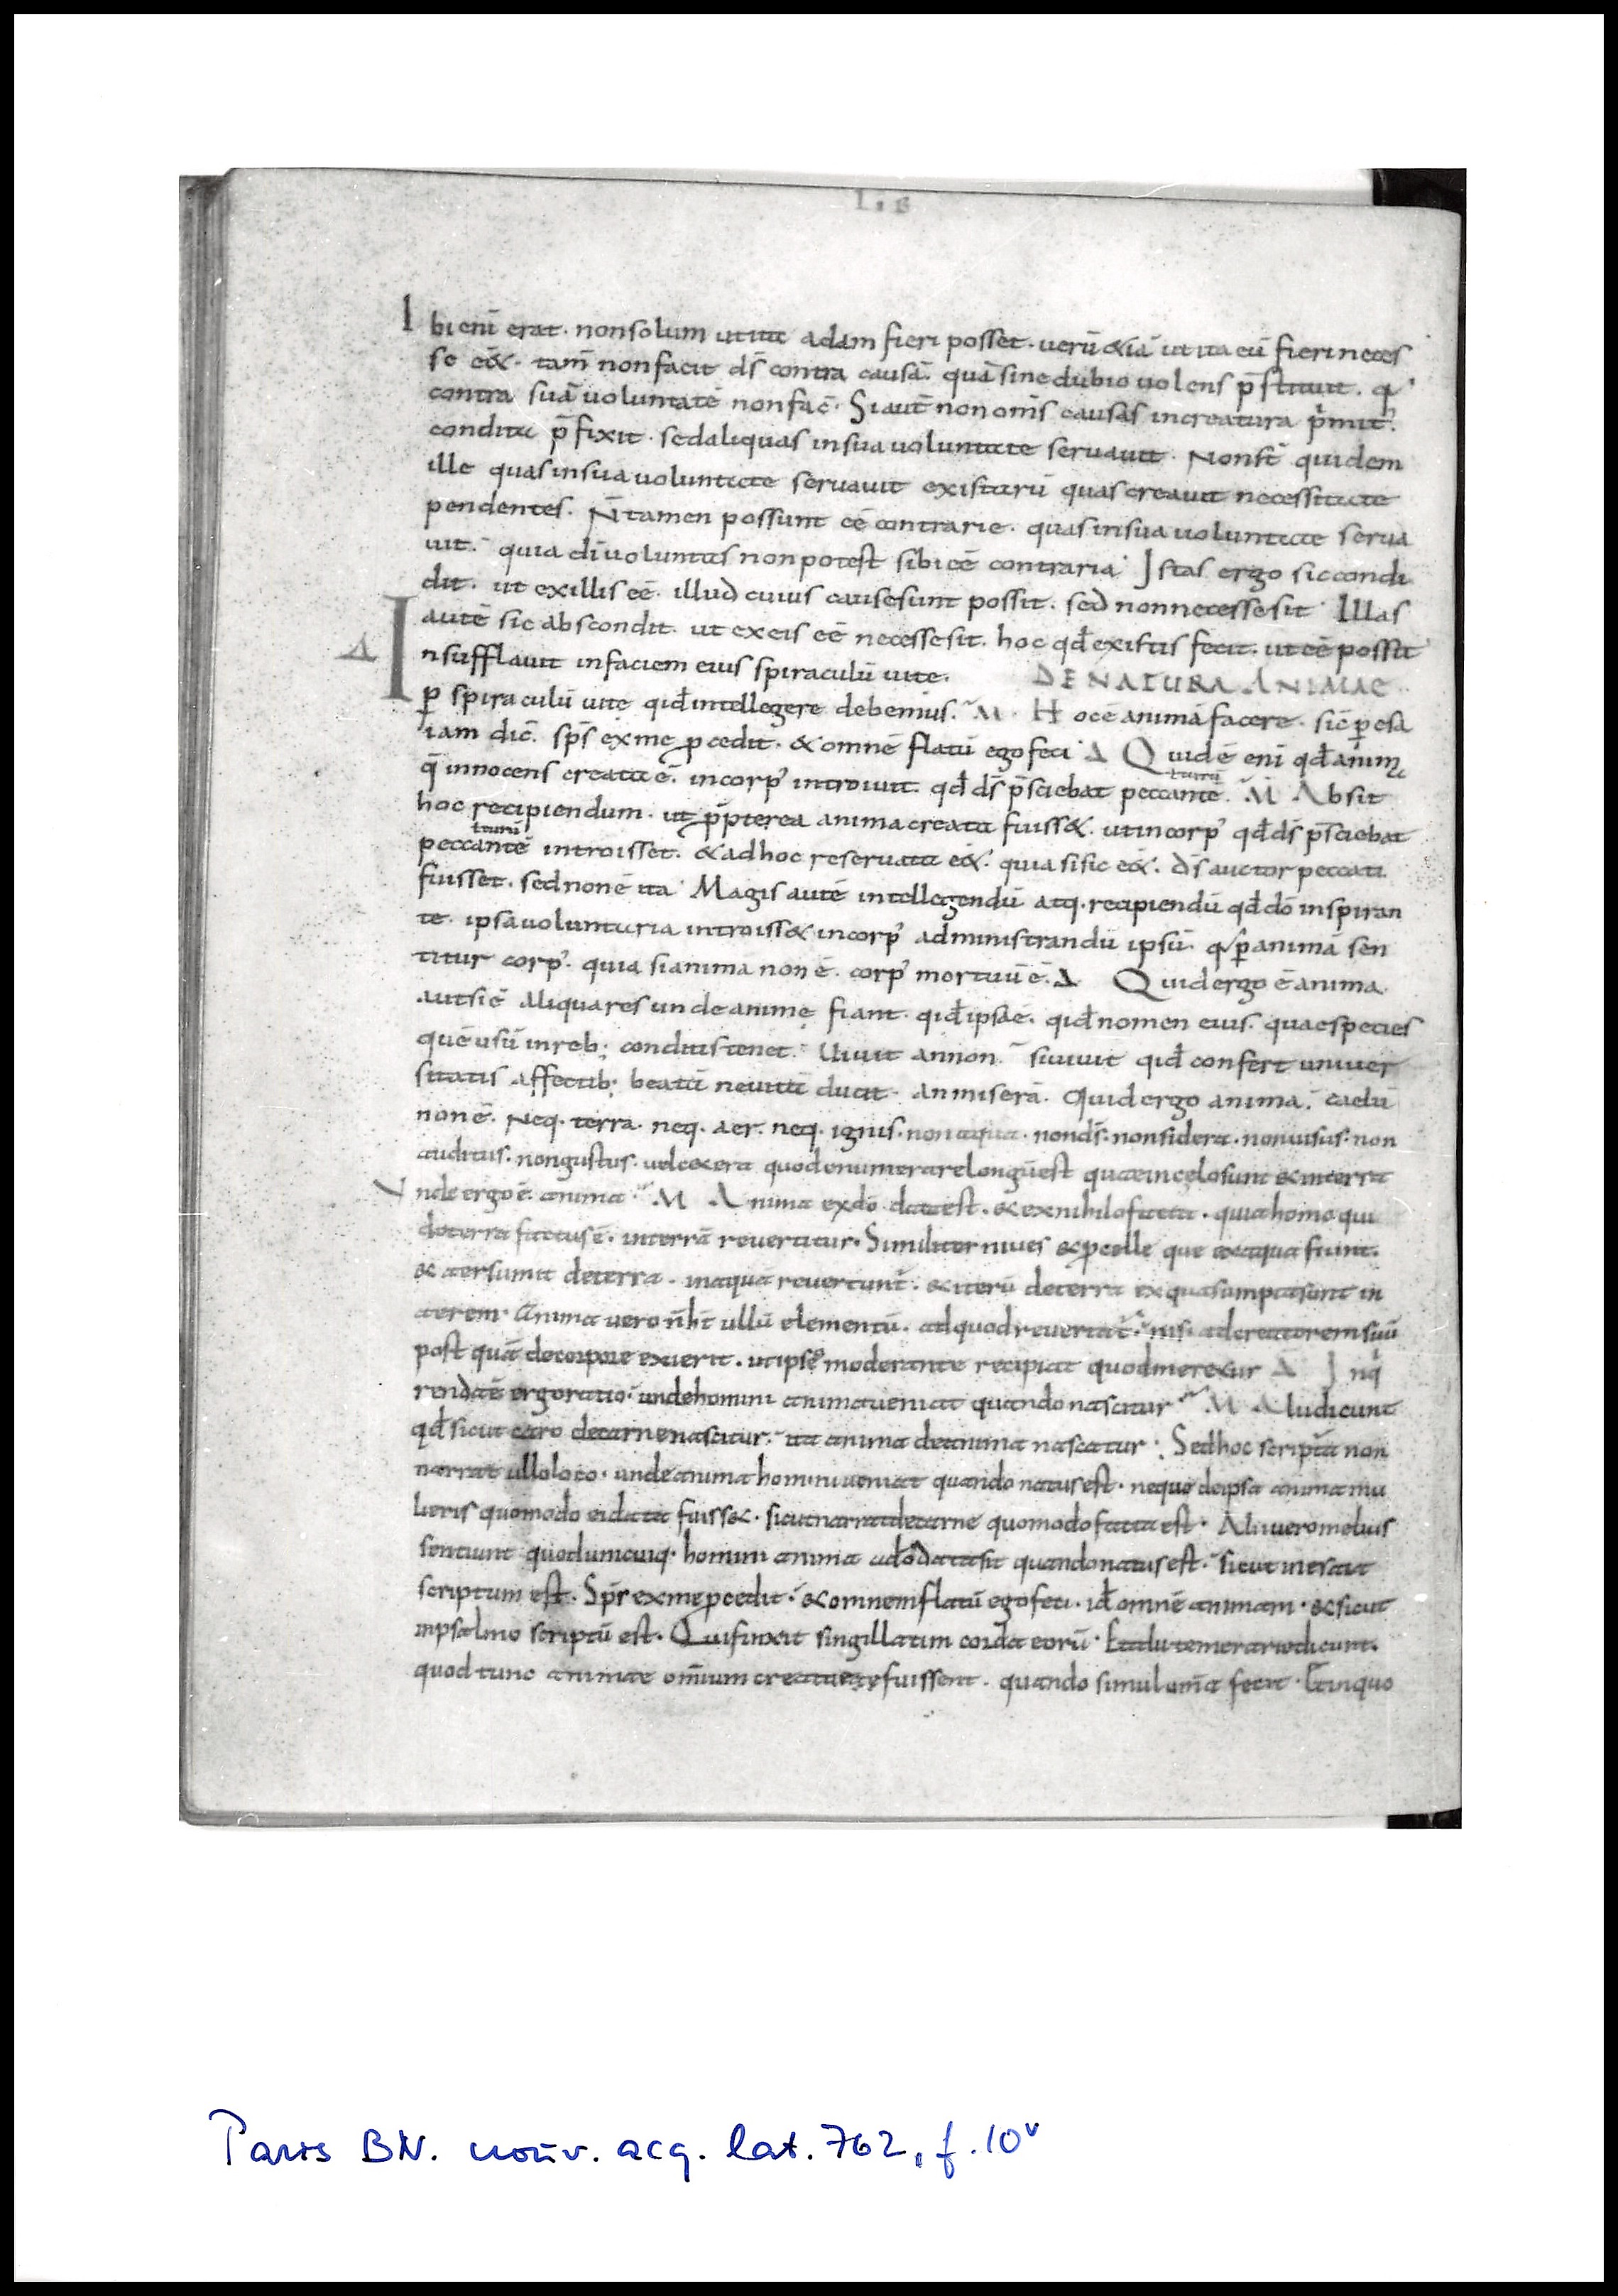 LIB
Ibi enī erat · non solum ut ita adam fieri posset · uerū & iā ut ita eū fieri neces
se eēt · tam̄ non facit ds̄ contra causā · quā sine dubio uolens p̄stituit · q
contra suā uoluntatē non fac̄ · Si aut̄ non om̄s causas in creatura p̄mit'
condita p̄fixit · sed aliquas in sua uoluntate seruauit · Non st̄ quidem
ille quas in sua uoluntate seruauit ex istarū quas creauit necessitate
pendentes · N̄ tamen possunt eē contrarie · quas in sua uoluntate serua
uit · quia di uoluntas non potest sibi eē contraria · Istas ergo sic condi
dit · ut ex illis eē · illud cuius cause sunt possit · sed non necesse sit · Illas
autē sic abscondit · ut ex eis eē necesse sit · hoc qd̄ ex istis fecit · ut eē possit
Δ Insufflauit in faciem eius spiraculū uite · DE NATURA ANIMAE
ꝑ spiraculū uite qid̄ intellegere debemus · M · Hoc ē animā facere · sic ꝑ esa
iam dic̄ · sps̄ ex me ꝓcedit · & omnē flatū ego feci · Δ Quid ē enī qd̄ animę
q̄ innocens creata ē · in corp' introiuit · qd̄ ds̄ p̄sciebat peccantē turū · M Absit
hoc recipiendum · ut ꝓpterea anima creata fuiss& · ut in corp' qd̄ ds̄ p̄sciebat
peccantē turū introisset · & ad hoc reseruata eē& · quia si sic eē& · ds̄ auctor peccati
fuisset · sed non ē ita · Magis autē intellegendū atq · recipiendū qd̄ dō inspiran
te · ipsa uoluntaria introiss& in corp' administrandū ipsū · q ꝑ animā sen
titur corp' · quia si anima non ē · corp' mortuū ē · Δ Quid ergo ē anima ·
aut si ē aliqua res unde animę fiant · qid̄ ipsa ē · qid̄ nomen eius · quae species
quē usū in reb; conditis tenet · Uiuit an non · si uiuit qid̄ confert uniuer
sitatis affectib; beatā ne uitā ducit · an miserā · Quid ergo anima · caelū
non ē · Neq · terra · neq · aer · neq · ignis · non aqua · non ds̄ · non sidera · non uisus · non
auditus · non gustus · uel cetera quod enumerare longū est quae in cęlo sunt & in terra
Unde ergo ē anima · M Anima ex dō data est · & ex nihilo facta · quia homo qui
de terra factus ē · in terrā reuertitur · Similiter niues & ꝓcelle que ex aqua fiunt ·
& aer sumit de terra · in aquā reuertunt̄ · & iterū de terra ex qua sumpta sunt in
aerem · Anima uero n̄ h̄t ullū elementū · ad quod reuertat̄ · nisi ad creatorem suū
post quā de corpore exierit · ut ipse moderante recipiat quod meretur Δ Inq̄
renda ē ergo ratio · unde homini anima ueniat quando nascitur · M Alii dicunt
qd̄ sicut caro de carne nascitur · ita anima de anima nascatur · Sed hoc scriptā non
narrat ullo loco · unde anima homini ueniat quando natus est · neque de ipsa anima mu
lieris quomodo ei data fuiss& · sicut narrat de carne quomodo facta est · Alii uero melius
sentiunt quod unicuiq · homini anima a dō data sit quando natus est · sicut in esaia
scriptum est · Sps̄ ex me ꝓcedit · & omnem flatū ego feci · id̄ omnē animam · & sicut
in psalmo scriptū est · Qui finxit singillatim corda eorū · Et alii temerarie dicunt ·
quod tunc animae om̄ium creatae fuissent · quando simul om̄a fecit · Et in quo
Paris BN. nouv. acq. lat. 762, f. 10v